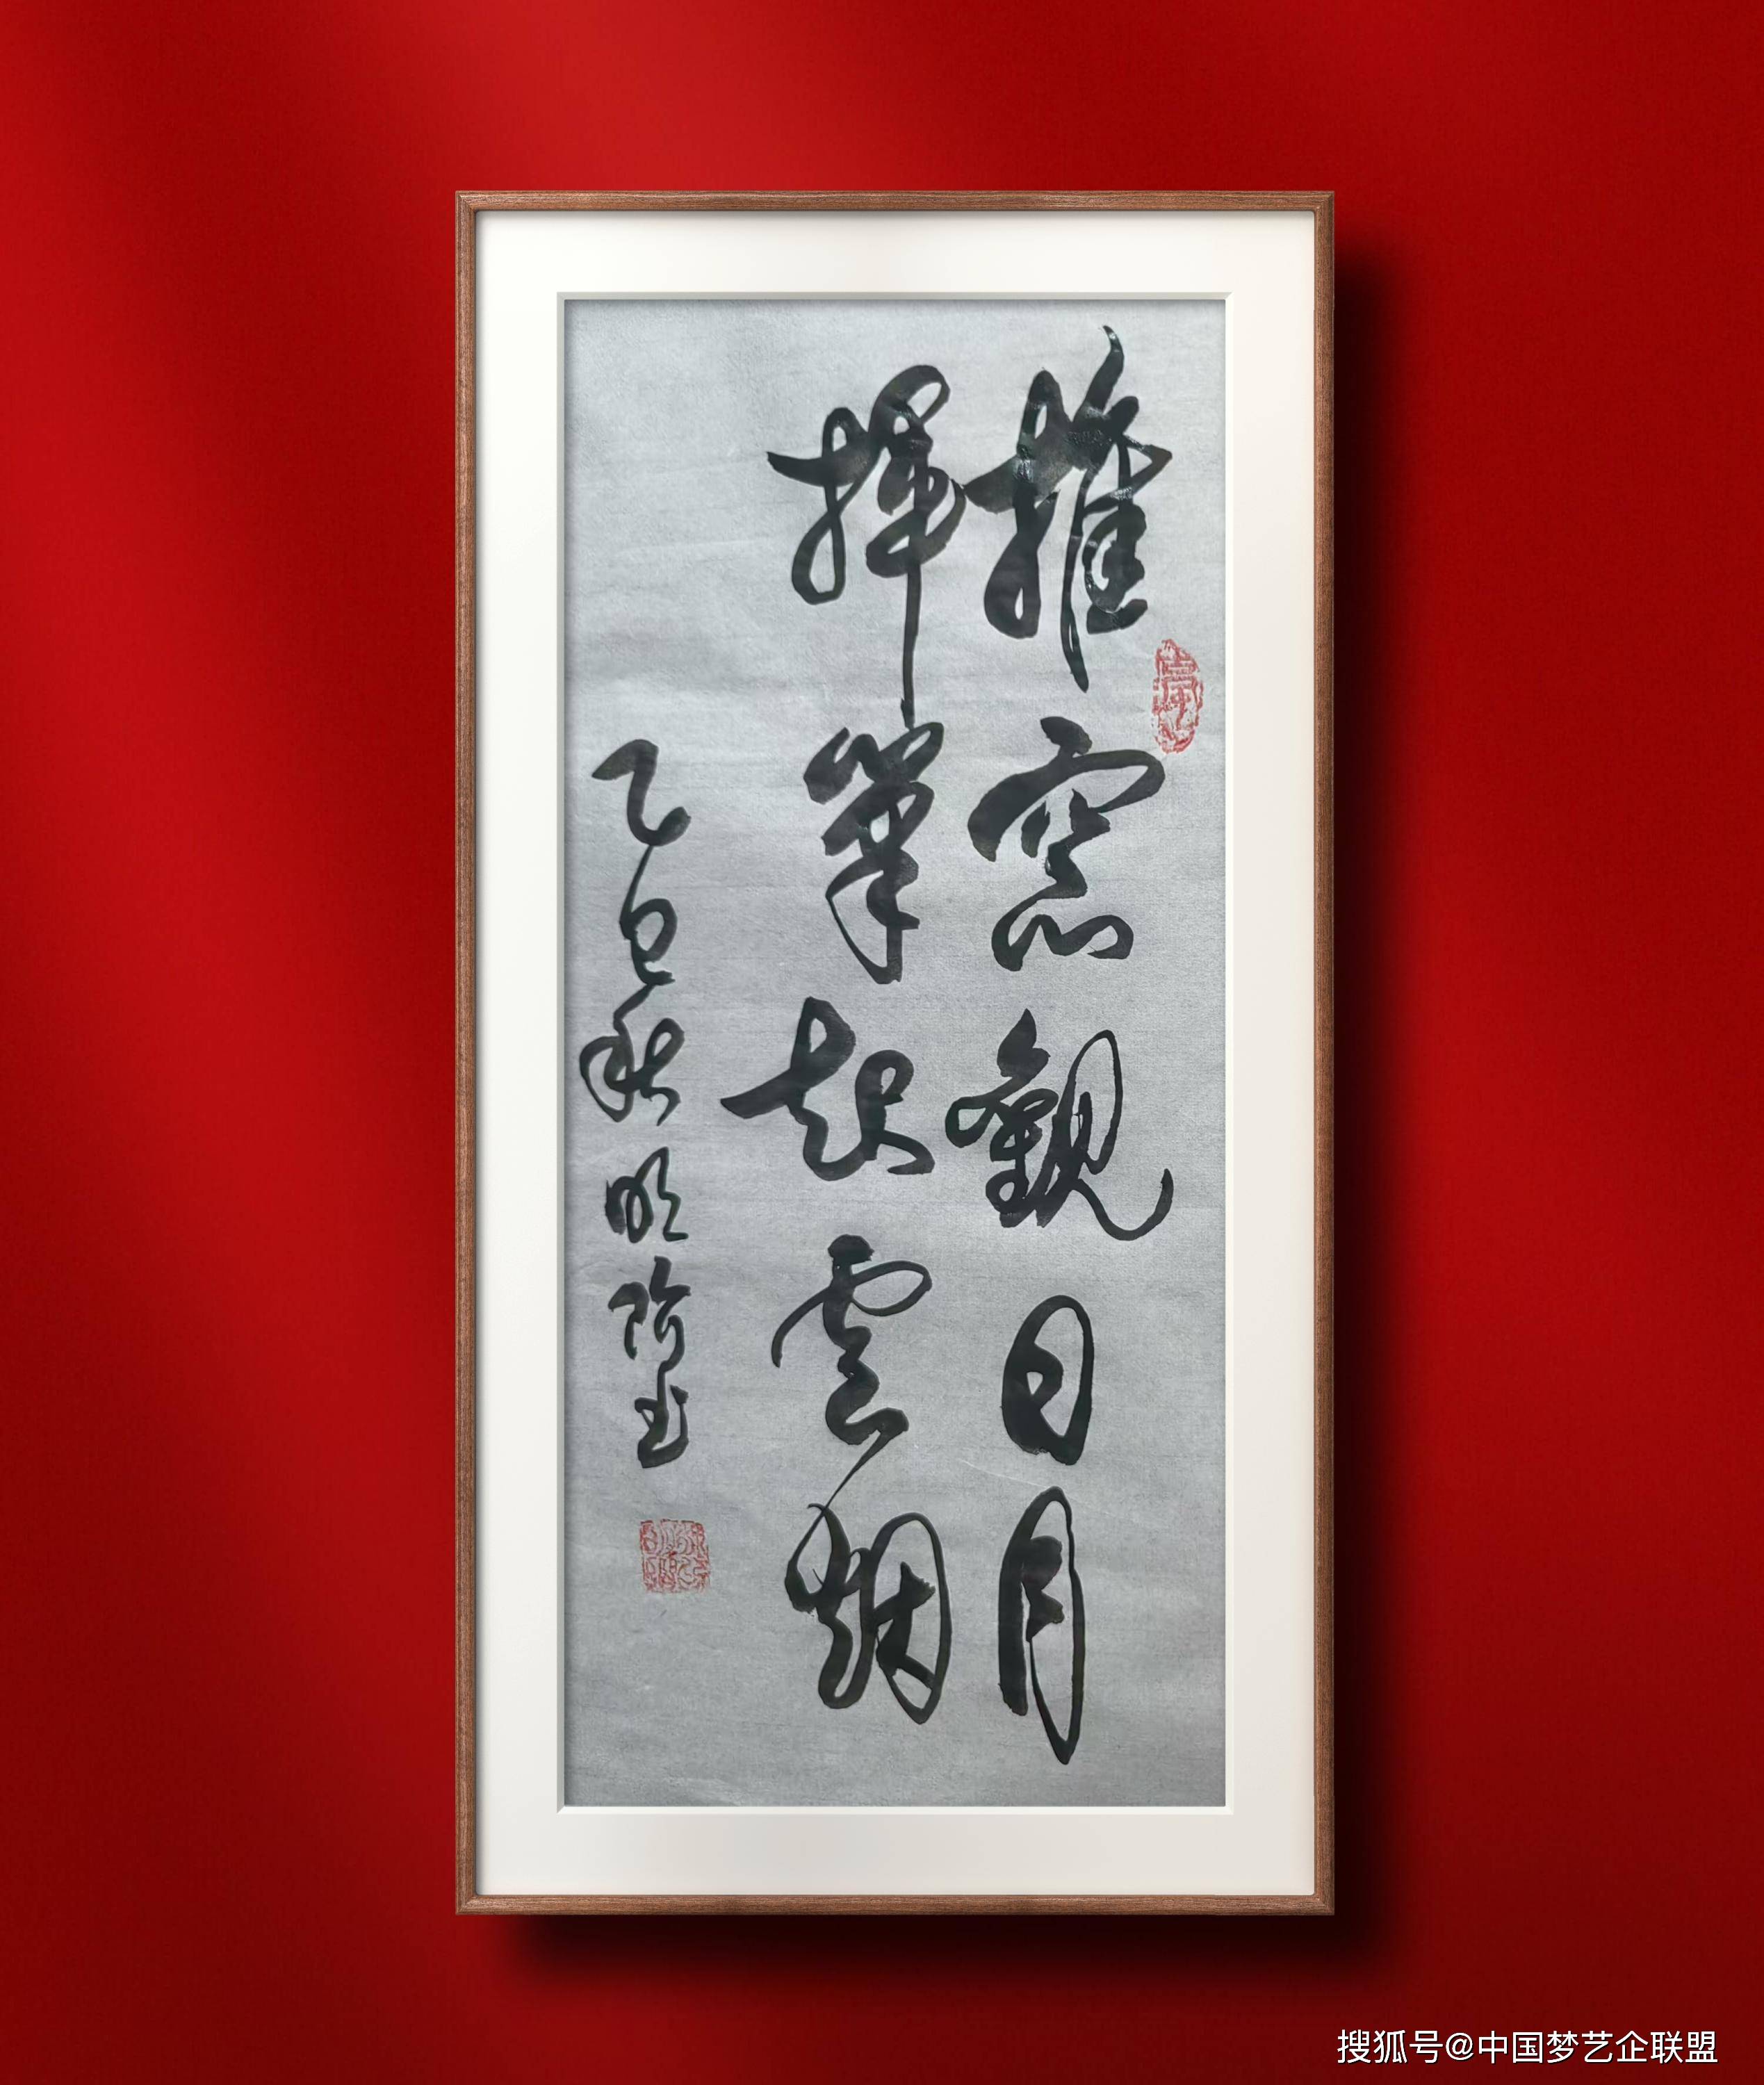 推窓觀日月
揮筆起雲烟
乙巳秋明
搜狐号@中国梦艺企联盟